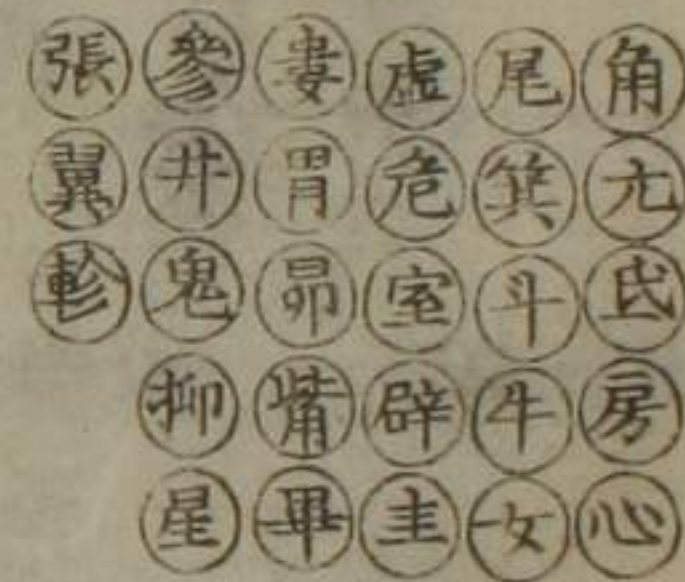 角亢氐房心
尾箕斗牛女
虚危室辟圭
婁胃昴觜畢
參井鬼抑星
張翼軫